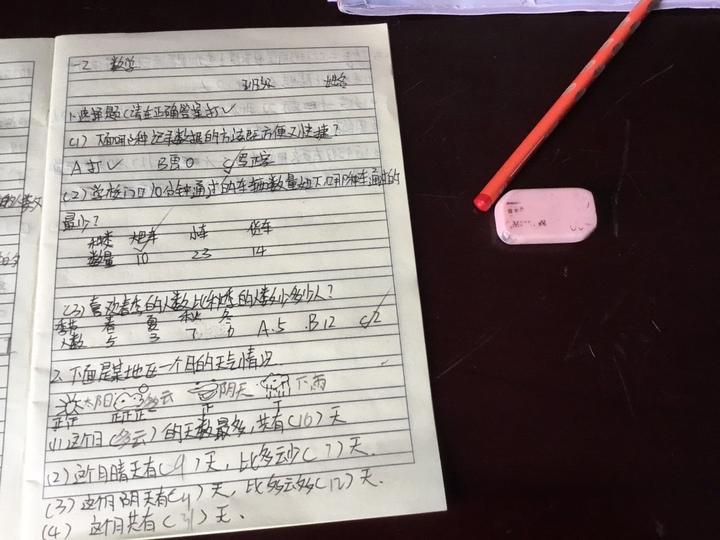 一2 数学
班级 姓名
1.选择题(请在正确答案打✓
(1) 下面哪种记录数据的方法既方便又快捷?
A 打✓ B画O C写正字
(2) 学校门口10分钟通过的车辆数量如下,哪种车通过的
最少?
种类 大巴车 小车 货车
数量 10 23 14
(3)喜欢春季的人数比秋季的人数少多少人?
季节 春 夏 秋 冬
人数 5 3 7 6 A.5 .B12 C2
2.下面是某地在一个月的天气情况
太阳 多云 阴天 下雨
正 正正正 正
(1)这个月(多云)的天数最多,共有(16)天
(2)这个月晴天有(9)天,比多云少(7)天.
(3)这个月阴天有(4)天,比多云多(12)天.
(4) 这个月共有(31)天.